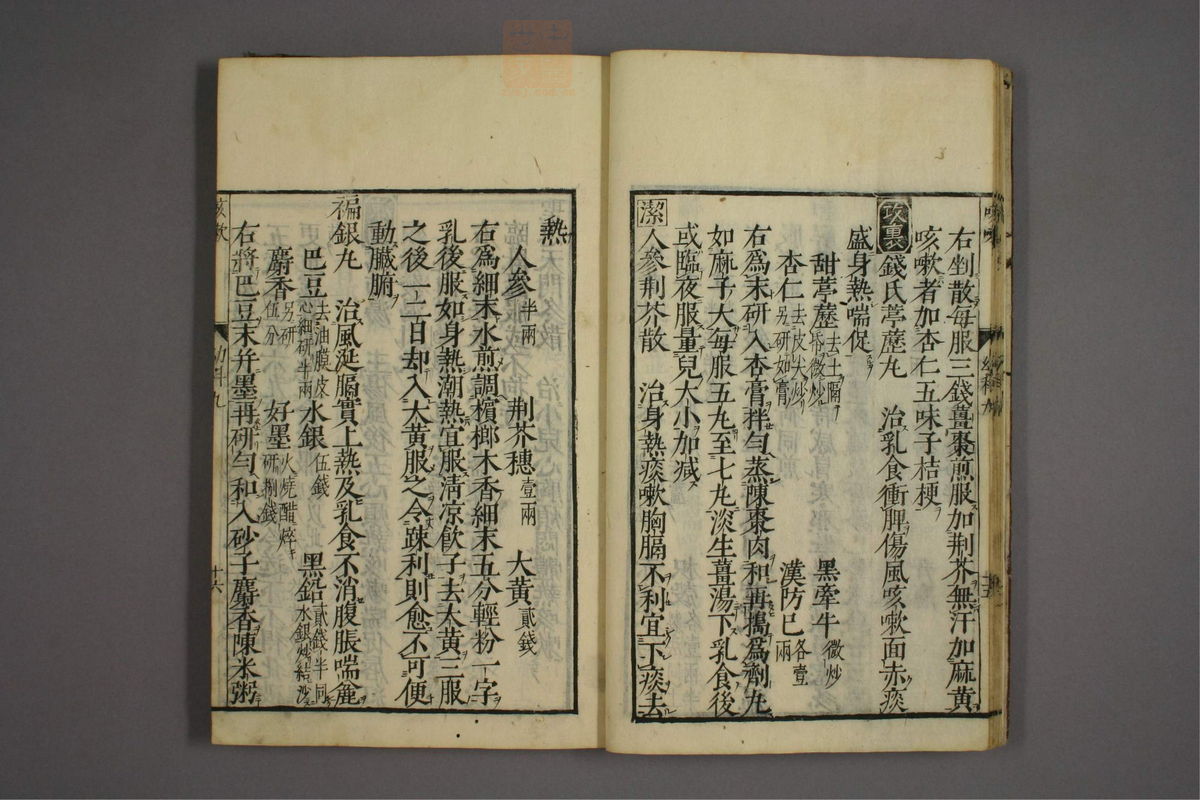 右剉散每服三錢薑棗煎服加荆芥無汗加麻黄
咳嗽者加杏仁五味子桔梗
攻裏 錢氏葶藶丸 治乳食衝脾傷風咳嗽面赤痰
盛身熱喘促
甜葶藶 去土隔帋微炒 黑牽牛 微炒
杏仁 去皮尖炒另研如膏 漢防已 各壹兩
右爲末研入杏膏拌勻蒸陳棗肉和再搗爲劑丸
如麻子大每服五丸至七丸淡生薑湯下乳食後
或臨夜服量兒大小加减
潔 人參荆芥散 治身熱痰嗽胸膈不利宜下痰去
熱
人參 半兩 荆芥穗 壹兩 大黄 貳錢
右爲細末水煎調檳榔木香細末五分輕粉一字
乳後服如身熱潮熱宜服清凉飮子去大黄三服
之後一二日却入大黄服之令踈利則愈不可便
動臓腑
褊銀丸 治風涎膈實上熱及乳食不消腹脹喘麄
巴豆 去油膜皮心細研半兩 水銀 伍錢 黑鉛 貳錢半同水銀炒結沙
麝香 另研伍分 好墨 火燒醋焠研捌錢
右將巴豆末并墨再研勻和入砂子麝香陳米粥
咳嗽
幼科九
十六